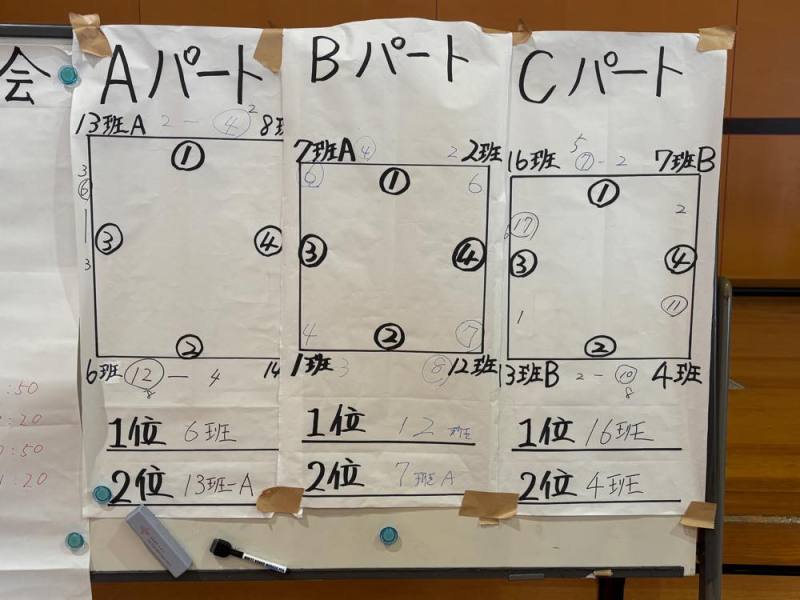 会
Aパート
13班A 2 - ④ 2 8班
①
3
⑥
|
3
③ ④
②
6班 ⑫ - 4 14
8
1位 6班
2位 13班-A
Bパート
7班A ④ 2 2班
⑥ ① 6
③ ④
4 ② ⑦
1班 3 ⑧ 12班
1位 12班
2位 7班A
Cパート
5
16班 ⑦-2 7班B
① 2
⑰
③ ④
1 ⑪
②
13班B 2-⑩ 4班
8
1位 16班
2位 4班
:50
:20
:50
:20